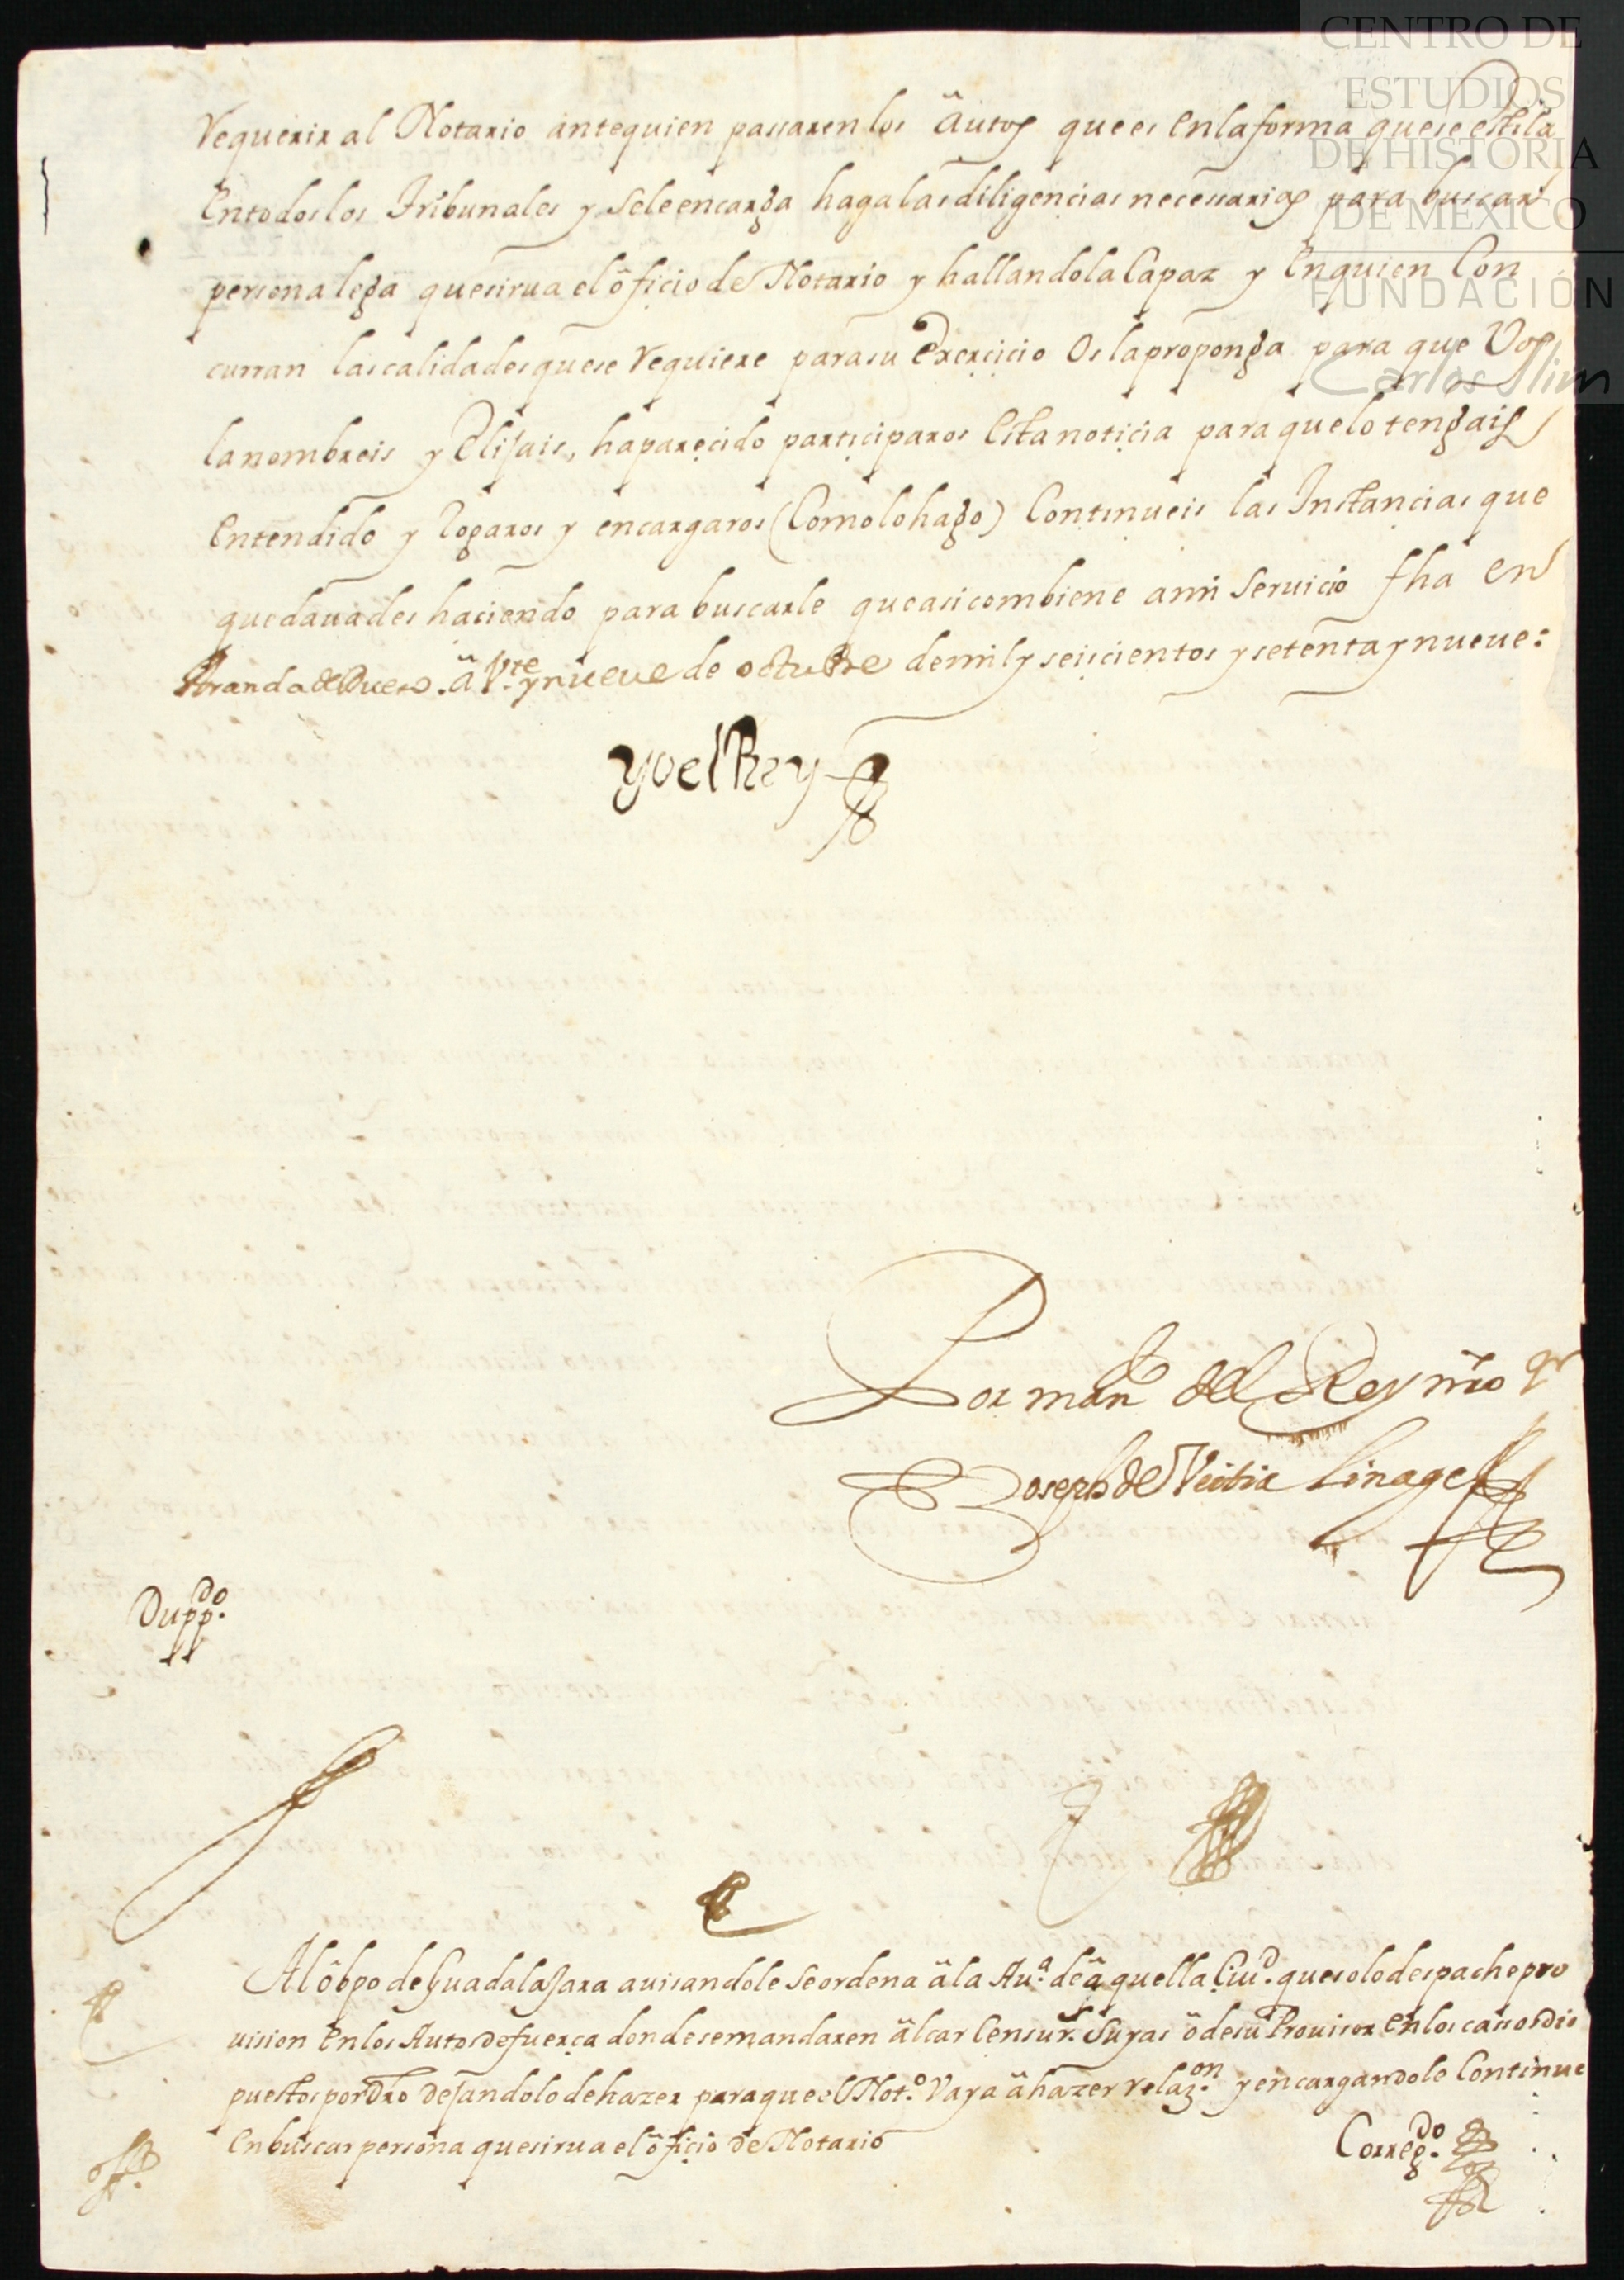 CENTRO DE
ESTUDIOS
DE HISTORIA
DE MÉXICO
FUNDACIÓN
Carlos Slim
requerir al Notario antequien passaren los âutos que es en la forma que se estila
en todos los Tribunales y se le encarga haga las diligencias necessarias para buscar
persona lega que sirua el ôficio de Notario y hallandola Capaz y en quien Con
curran las calidades que se requiere para su exercicio os la proponga para que Vos
la nombreis y elijais, ha parecido participaros esta noticia para que lo tengais
entendido y rogaros y encargaros (Como lo hago) Continueis las Instancias que
quedauades haciendo para buscarle que asi combiene a mi seruicio fha en
Aranda de Duero. â Vte y nueue de octubre de mil y seiscientos y setenta y nueue:
Yo el Rey
Por mando del Rey nro sr
Joseph de Veitia Linage
Duppdo.
Al ôbpo de Guadalajara auisandole se ordena â la Aua. de âquella Ciud. que solo despache pro
uision en los Autos de fuerça donde se mandaren âlçar Censurs. suyas ô de su Prouisor en los casos dis
puestos por dro dejandolo de hazer para que el Noto. vaya â hazer relazon. y encargandole Continue
en buscar persona que sirua el ôficio de Notario
Corregdo.